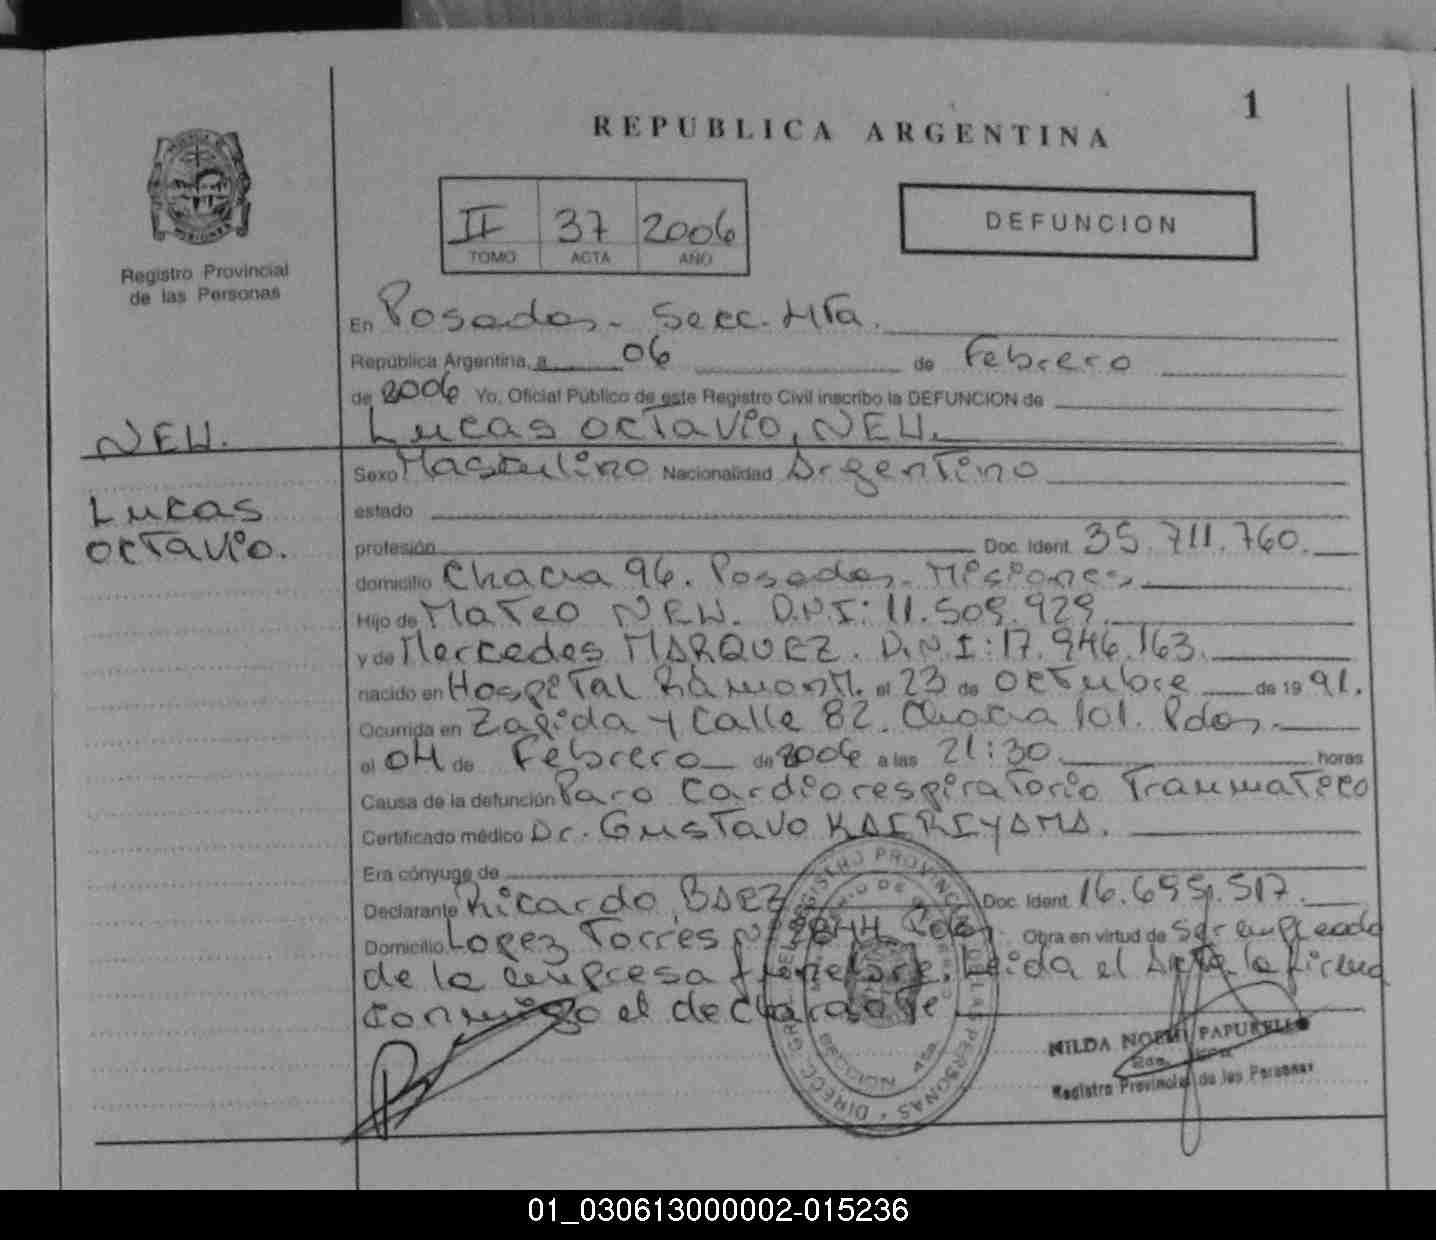 1
REPUBLICA ARGENTINA
II 37 2006
TOMO ACTA AÑO
DEFUNCION
Registro Provincial
de las Personas
En Posadas - Secc. 4ta.
República Argentina, a 06 de Febrero
de 2006 Yo, Oficial Público de este Registro Civil inscribo la DEFUNCION de
NEU. Lucas Octavio, NEU.
Lucas
Octavio.
Sexo Masculino Nacionalidad Argentino
estado
profesión Doc. Ident. 35.711.760.
domicilio Chacra 96. Posadas - Misiones
Hijo de Mateo NEU. D.N.I: 11.509.929.
y de Mercedes MARQUEZ. D.N.I: 17.946.163.
nacido en Hospital Ramon M. el 23 de Octubre de 19 91.
Ocurrida en Zapida y Calle 82. Chacra 101. Pdas.
el 04 de Febrero de 2006 a las 21:30 horas
Causa de la defunción Paro Cardiorespiratorio Traumatico
Certificado médico Dr. Gustavo KAIRIYAMA.
Era cónyuge de
Declarante Ricardo, BAEZ Doc. Ident. 16.695.517.
Domicilio Lopez Torres Nº 2844 Pdas Obra en virtud de ser empleado
de la empresa funebre. Leida el Acta la firma
conmigo el declarante
NILDA NOEMI PAPURELLO
Registro Provincial de las Personas
SECCION 4ta.
01_030613000002-015236